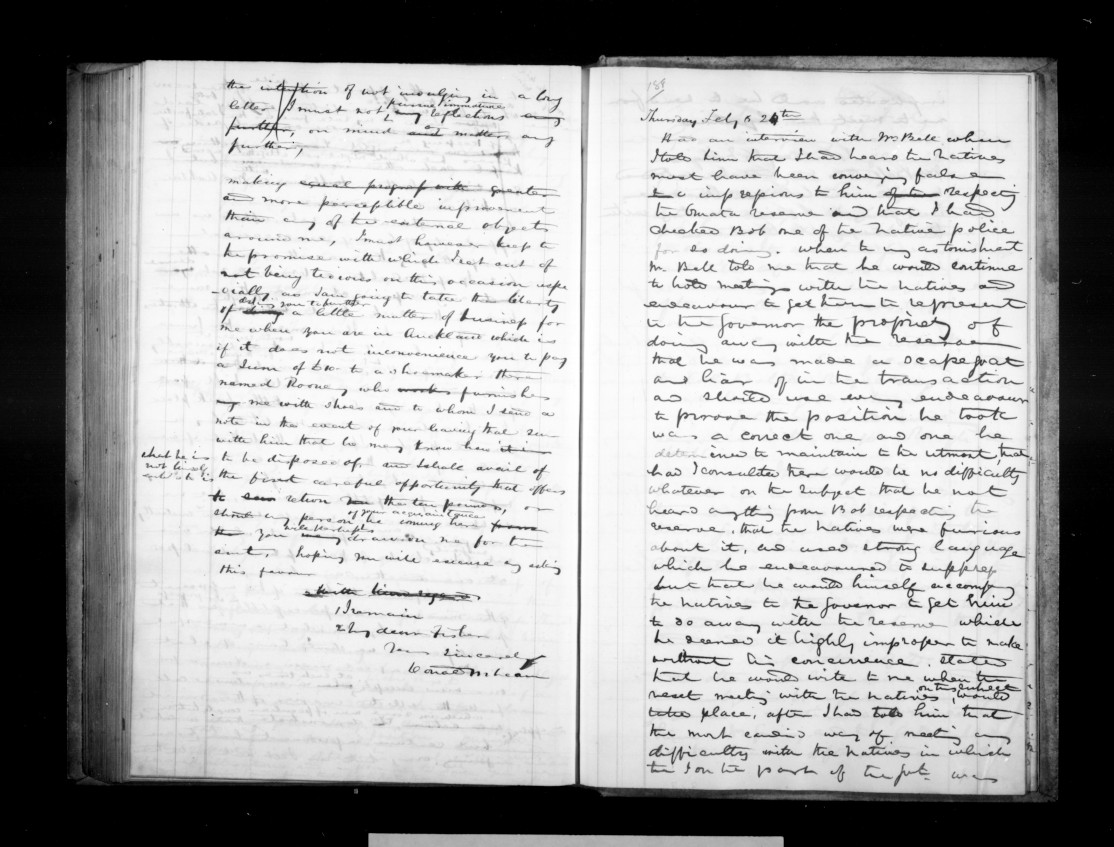 the intention of not indulging in a long
letter I must not pursue immature
any reflections any
further, on mind and matter any
further,
making equal progress with greater
and more perceptible improvement
than any of the external objects
around me, I must however keep to
the promise with which I set out of
not being tedious on this occasion espe
-cially as I am going to take the liberty
of asking you to further
doing a little matter of business for
me when you are in Auckland which is
if it does not inconvenience you to pay
a Sum of £10- to a shoemaker there
named Rooney who works furnishes
my me with shoes and to whom I send a
note in the event of your leaving that sum
with him that he may know how it is
to be disposed of, and I shall avail of
the first careful opportunity that offers
to return the ten pounds, or
should any person of your acquaintance be coming here from
the you will perhaps draw on me for the
amt, hoping you will excuse my asking
this favour
With kind regards
I remain
My dear Fisher
Yours Sincerely
Donald McLean
what he is
not likely
188
Thursday Feby 24th
Had an interview with Mr Bell when
I told him that I had heard the Natives
must have been conveying false
impressions to him respecting
the Omata reserve and that I had
checked Bob one of the native police
for so doing. when to my astonishment
Mr. Bell told me that he would continue
to hold meetings with the natives and
endeavour to get them to represent
to the Governor the propriety of
doing away with the reserve
that he was made a scapegoat
and liar of in the transaction
and should use every endeavour
to prove the position he took
was a correct one and one he
determined to maintain to the utmost, that
had I consulted there would be no difficulty
whatever on the subject that he not
heard anything from Bob respecting the
reserve, that the natives were furious
about it, and used strong language
which he endeavoured to suppress
but that he would himself accompany
the natives to the Governor to get him
to do away with the reserve which
he deemed it highly improper to make
without his concurrence. stated
that he would write to me when the
next meeting with the natives on this subject would
take place, after I had told him that
the most candid way of meeting any
difficulty with the natives in which
the I on the part of the Govt. was